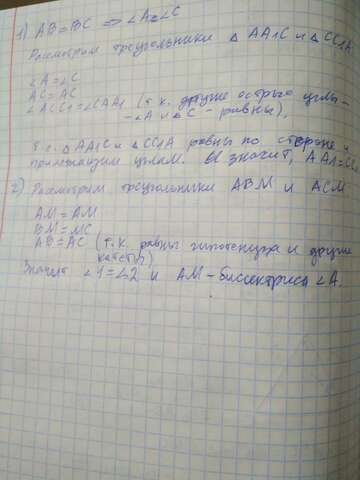 1) AB=BC ⇒ ∠A=∠C
Рассмотрим треугольники △ AA1C и △ CC1A
∠A=∠C
AC=AC
∠ACC1=∠CAA1 (т.к. другие острые углы -
- ∠A и ∠C - равны),
т.е. △ AA1C и △ CC1A равны по стороне и
прилежащим углам. И значит, AA1=CC1
2) Рассмотрим треугольники ABM и ACM
AM=AM
BM=MC
AB=AC (т.к. равны гипотенуза и другие
катеты)
Значит ∠1=∠2 и AM-биссектриса ∠A.